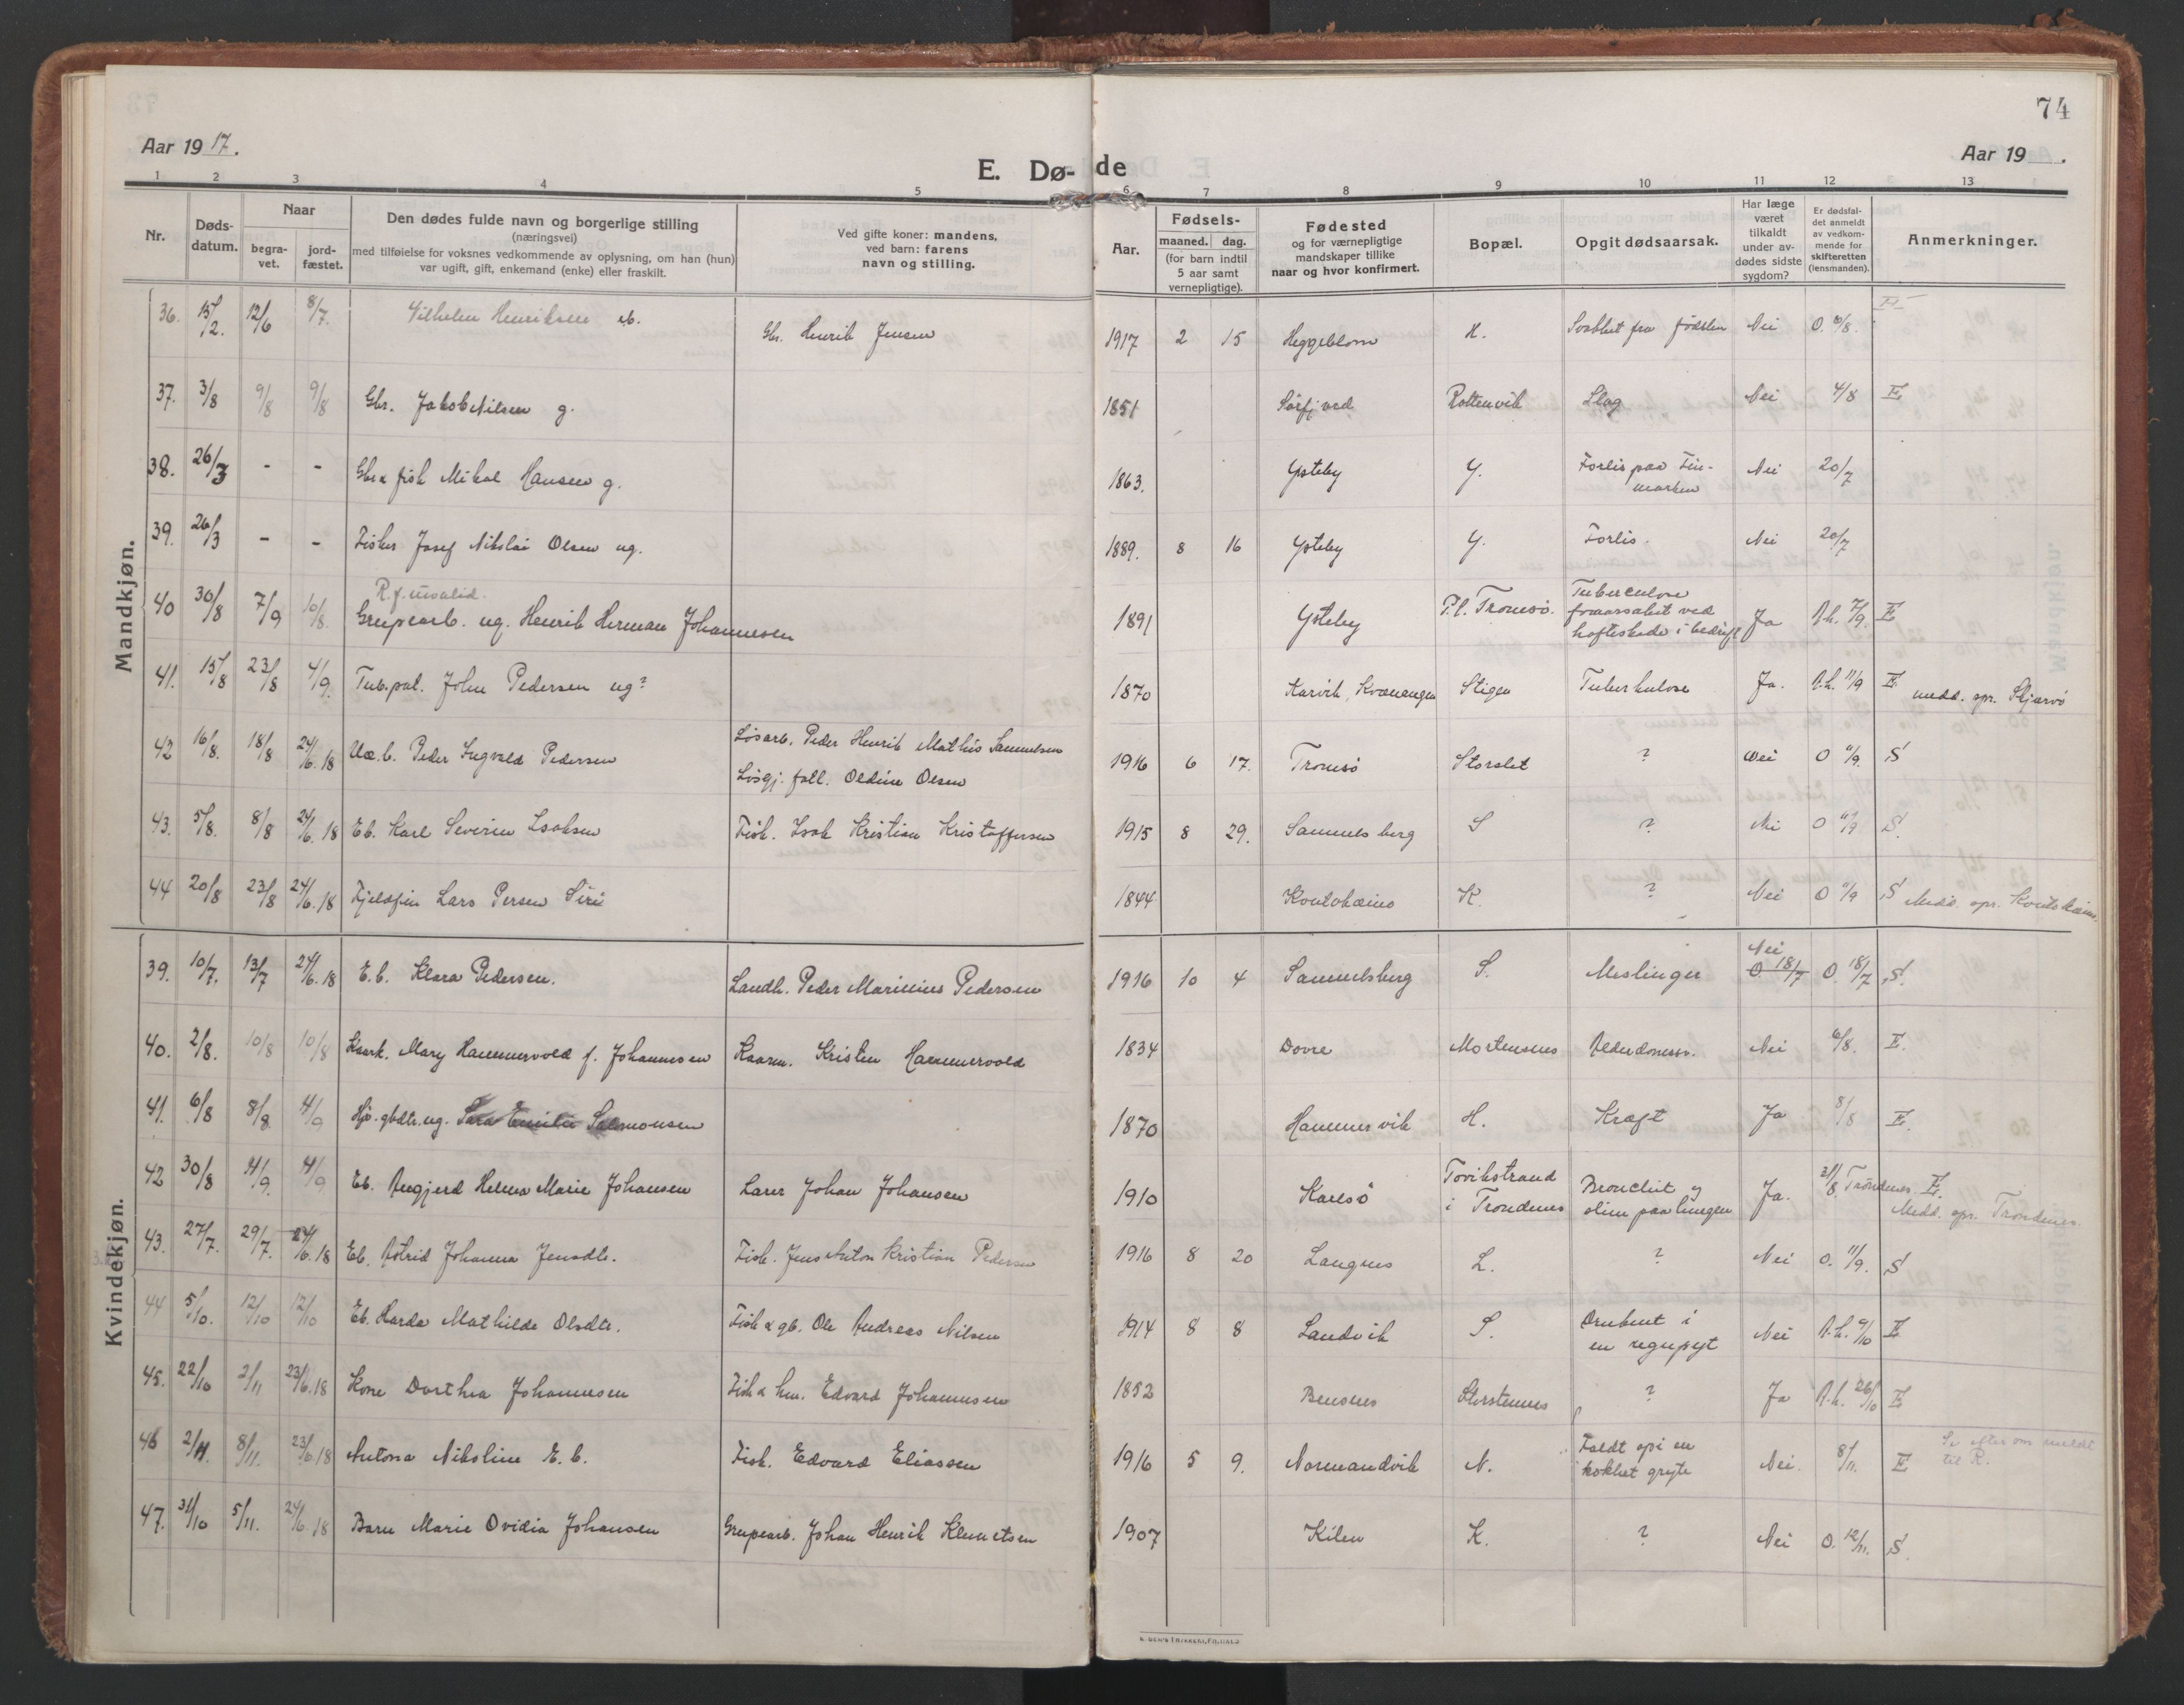 74
Aar 1917.
Aar 19 .
E. Dø- de
1 2 3 4 5 6 7 8 9 10 11 12 13
Nr.
Døds-
datum.
Naar
begra-
vet.
jord-
fæstet.
Den dødes fulde navn og borgerlige stilling
(næringsvei)
med tilføielse for voksnes vedkommende av oplysning, om han (hun)
var ugift, gift, enkemand (enke) eller fraskilt.
Ved gifte koner: mandens,
ved barn: farens
navn og stilling.
Aar.
Fødsels-
maaned. dag.
(for barn indtil
5 aar samt
vernepligtige).
Fødested
og for værnepligtige
mandskaper tillike
naar og hvor konfirmert.
Bopæl.
Opgit dødsaarsak.
Har læge
været
tilkaldt
under av-
dødes sidste
sygdom?
Er dødsfal-
det anmeldt
av vedkom-
mende for
skifteretten
(lensmanden).
Anmerkninger.
Mandkjøn.
36. 15/2. 12/6 8/7. Vilhelm Henriksen eb. Gbr. Henrik Jensen 1917 2 15 Heggeblom H. Svakhet fra fødslen Nei O. 6/8. E
37. 3/8 9/8 9/8 Gbr. Jakob Nilsen g. 1851 Sörfj ved Rottenvik Slag Nei 4/8 E
38. 26/3 - - Gbr & fisk Mikal Hansen g. 1863. Ysteby Y. Forlis paa Fin-
marken Nei 20/7
39. 26/3 - - Fisker Josef Nikolai Olsen ug. 1889. 8 16 Ysteby Y. Forlis. Nei 20/7
R.f. invalid.
40 30/8 7/9 10/8. Grupearb. ug. Henrik Herman Johannesen 1891 Ysteby P.t. Tromsö. Tuberculose
foraarsaket ved
hofteskade i bedrift Ja A.h. 7/9. E
41. 15/8 23/8 4/9. Tub.pal. John Pedersen ug? 1870 Karvik, Kvænangen Stigen Tuberkulose Ja. A.h. 11/9 E medd. spr. Skjærvö
42 16/8. 18/8 24/6.18 Uæ.b. Peder Ingvald Pedersen Lösarb. Peder Henrik Mathis Samuelsen
Lösgj. fall. Oldine Olsen 1916 6 17. Tromsö Storslet ? Nei O 11/9. S
43. 5/8. 8/8 24/6.18 Eb. Karl Severin Isaksen Fisk. Isak Kristian Kristoffersen 1915 8 29. Samuelsberg S ? Nei O 11/9 S.
44 20/8 23/8 24/6.18 Fjeldfin Lars Persen Siri 1844 Koutokeino K. ? Nei O 11/9 S Medd. spr. Koutokeino
Kvindekjøn.
39. 10/7. 13/7 24/6.18 E.b. Klara Pedersen. Landh. Peder Marinius Pedersen 1916 10 4 Samuelsberg S. Meslinger Nei
O 18/7 O. 18/7 S.
40. 2/8. 10/8 10/8 Kaark. Mary Hammervold f. Johannesen Kaarm. Kristen Hammervold 1834 Dovre Mortensnes Alderdomssv. Nei 6/8. E.
41. 6/8 8/8 4/9 Hjv. gbdtr. ug. Sara Emilie Salomonsen 1870 Hammervik H. Kræft Ja 8/8 E.
42 30/8 4/9. 4/9 Eb. Angjerd Helma Marie Johansen Lærer Johan Johansen 1910 Karlsö Tovikstrand
i Trondenes Bronchit og
slim paa lungen Ja. 31/8. Trondenes. E.
Medd. spr. Trondenes.
43. 27/7. 29/7. 24/6.18 Eb. Astrid Johanna Jensdtr. Fisk. Jens Anton Kristian Pedersen 1916 8 20 Langnes L. ? Nei O. 11/9. S
44 5/10. 12/10 12/10 Eb. Harda Mathilde Olsdtr. Fisk & gb. Ole Andreas Nilsen 1914 8 8 Sandvik S. Druknet i
en regnpyt Nei A.h. 9/10 E
45. 22/10 2/11 23/6.18 Kone Dorthea Johannesen Fisk & hm. Edvard Johannesen 1852 Bensnes Storstennes ? Ja A.h. 26/10 E
46 2/11. 8/11. 23/6.18 Antona Nikoline E.b. Fisk. Edvard Eliassen 1916 5 9. Normandvik N. Faldt opi en
kokhet gryte Nei. 8/11. E Se efter om meldt
til R.
47. 31/10 5/11. 24/6.18 Barn Marie Ovidia Johansen Grupearb. Johan Henrik Klemetsen 1907 Kilen K. ? Nei O. 12/11. S.